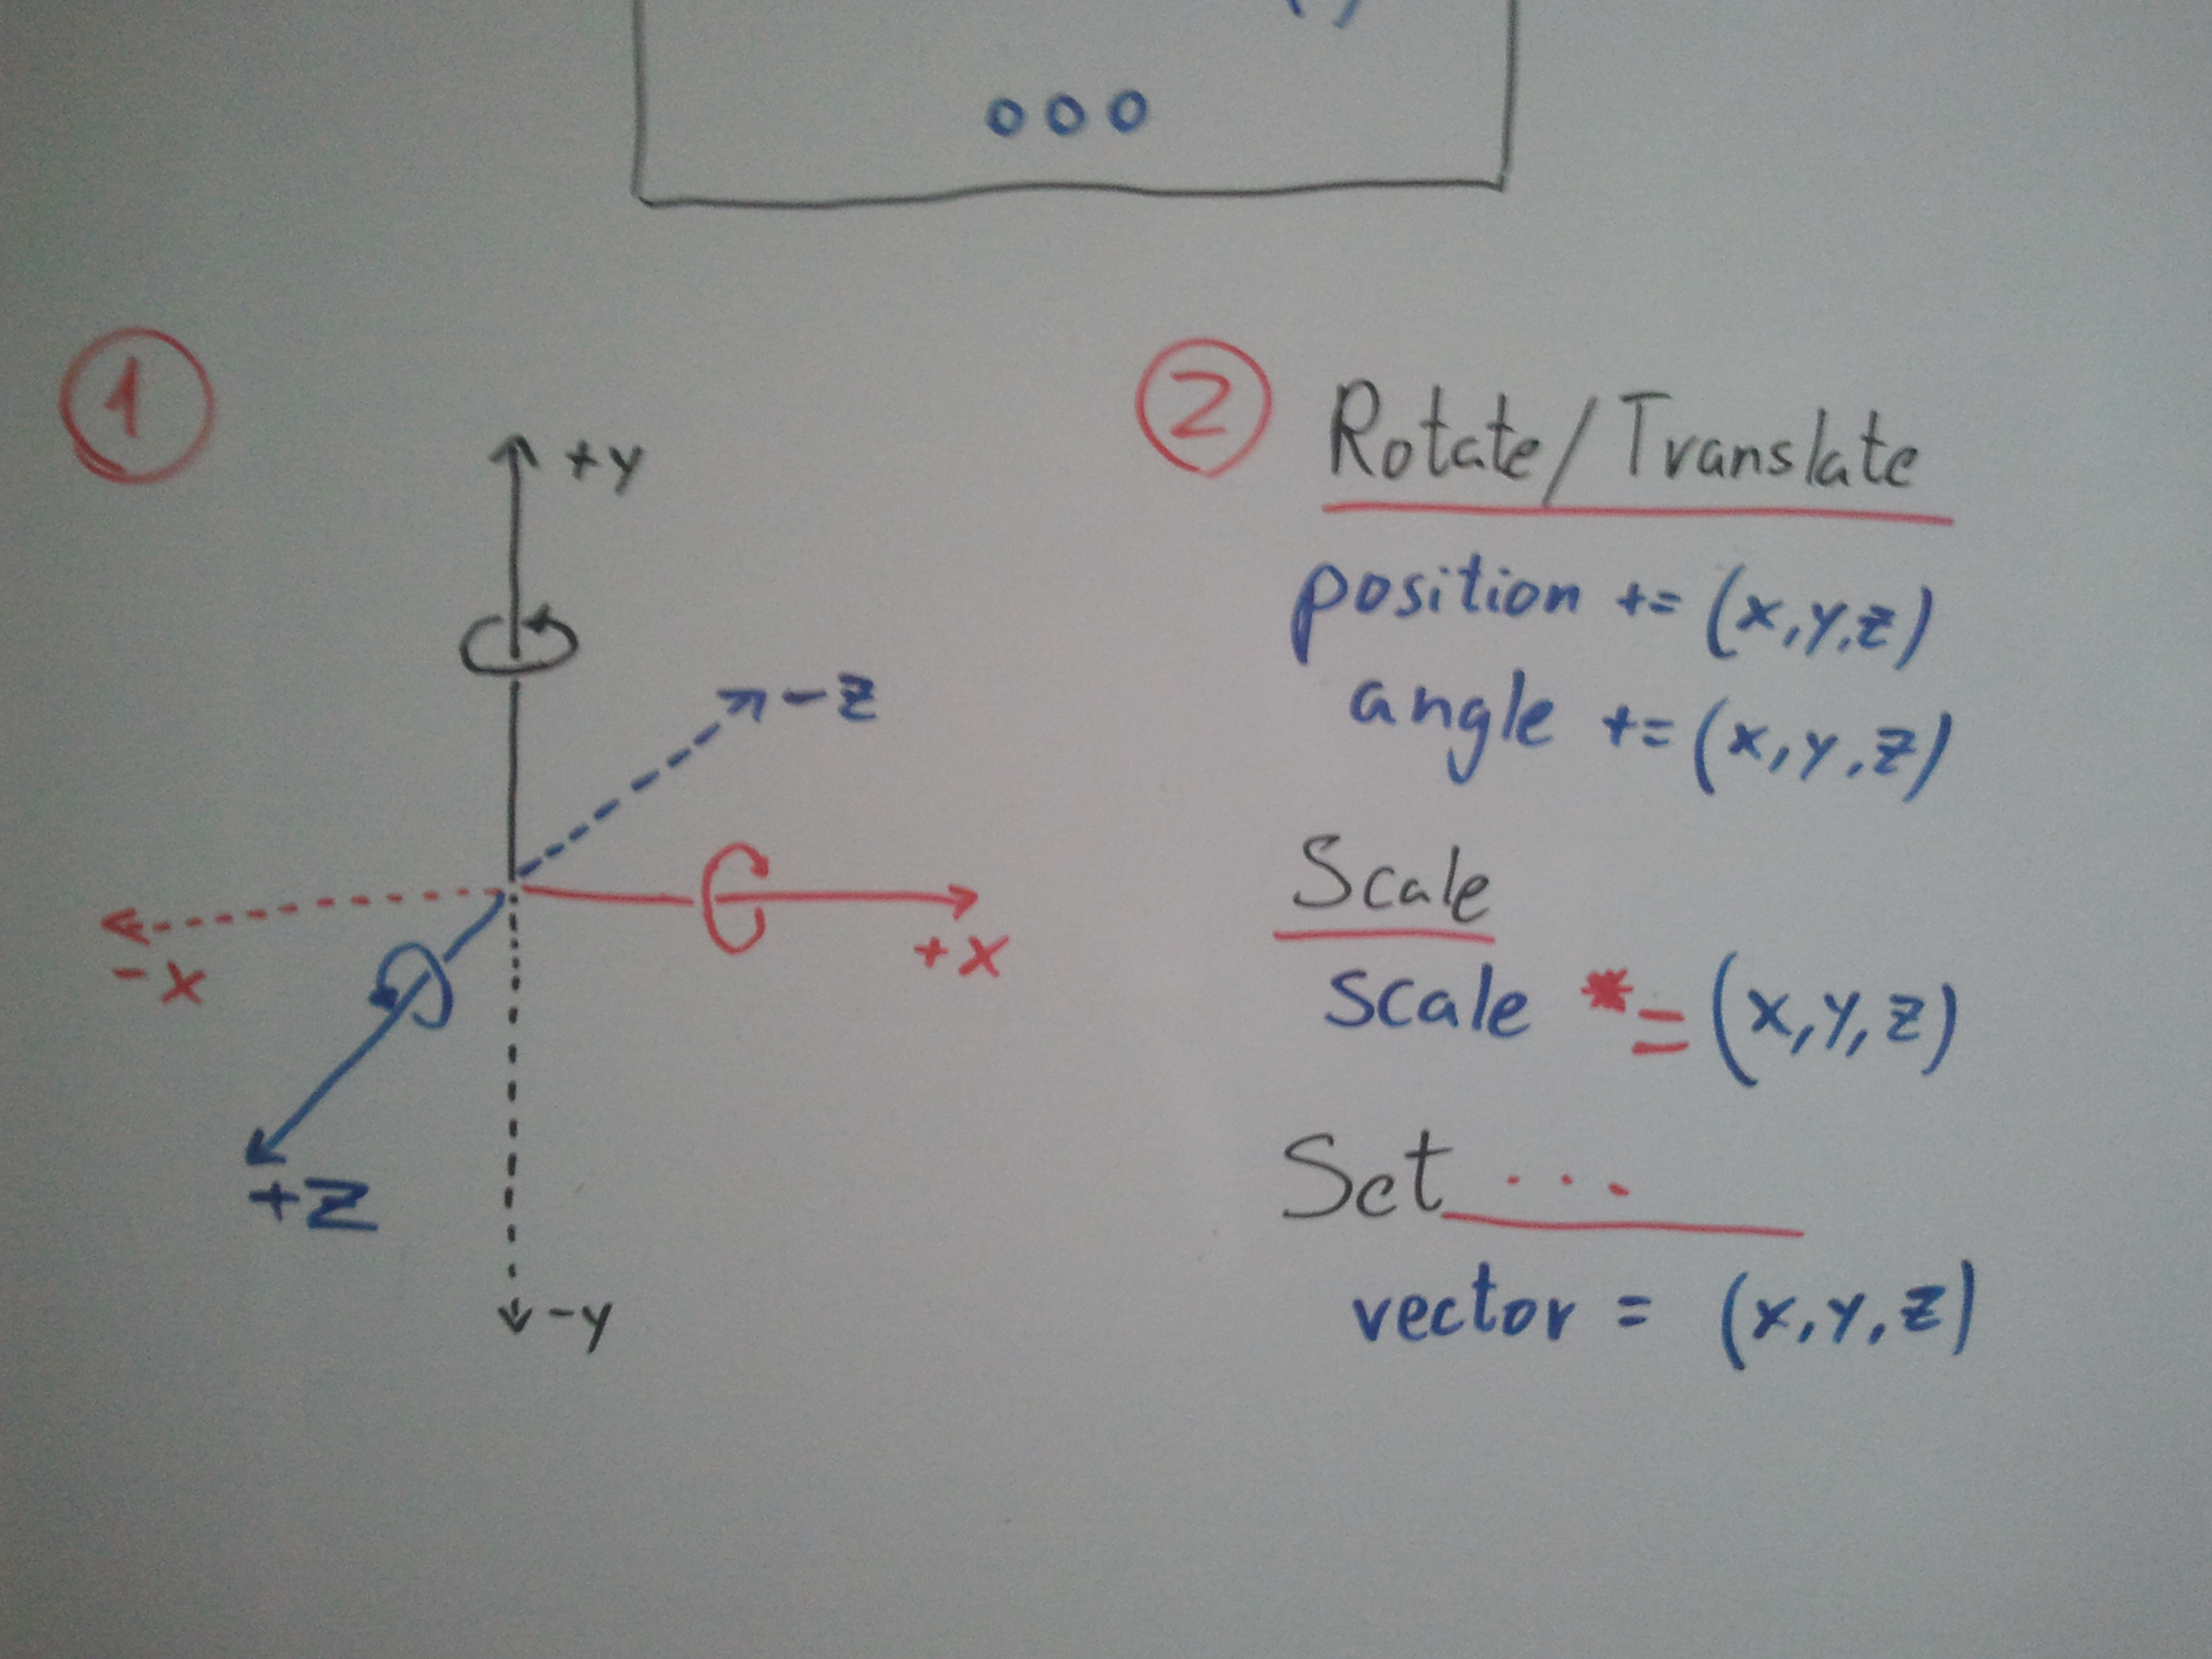 ooo
1
+y
-z
-x
+x
+z
-y
2 Rotate/Translate
position += (x,y,z)
angle += (x,y,z)
Scale
scale *= (x,y,z)
Set ...
vector = (x,y,z)